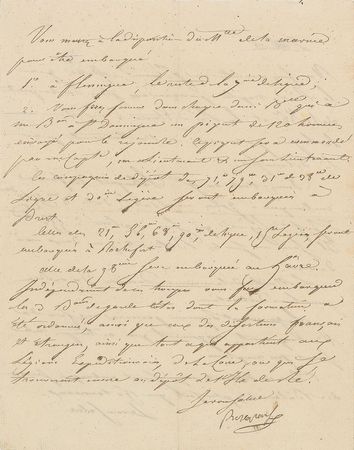 Vous mettrez à la disposition du M.tre de la marine
pour être embarqué
1.o à flessingue, le reste de la 7.me de ligne;
2.o Vous ferez former dans chaque demi B.on qui a
un B.on à S.t Domingue un piquet de 120 hommes
envoyé pour le rejoindre, ce piquet sera commandé
par un Capt.e, un Lieutenant & un Sous Lieutenant.
Les compagnies de dépôt des 71.e, 31.e de
Légère et de Ligne seront embarquées à
Brest
celles des 21.e 68.e 90.me de ligne, Légère seront
embarquées à Rochefort
celle de la 98.me sera embarquée au havre.
Indépendamment de ces troupes vous ferez embarquer
les 3 B.ons de garde côtes dont la formation a
été ordonnée, ainsi que ceux des déserteurs français
et étrangers, ainsi que tout ce qui appartient aux
Légions Expéditionnaires, de la Loire, ou qui se
trouvent encore au dépôt de l'Ile de Ré.
Je vous salue